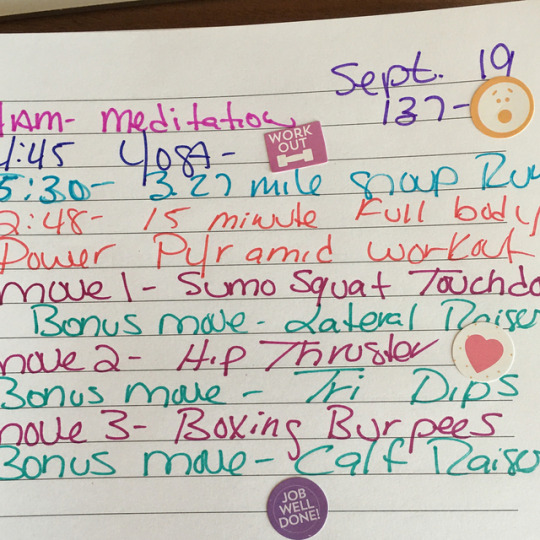 Sept. 19
137-
AM- Meditation
WORK
OUT
:45 Yoga-
5:30- 3.27 mile group Run
2:48- 15 minute Full body
Power Pyramid workout
move 1- Sumo Squat Touchdo
Bonus move- Lateral Raises
move 2- Hip Thruster
Bonus move- Tri Dips
move 3- Boxing Burpees
Bonus move- Calf Raises
JOB
WELL
DONE!